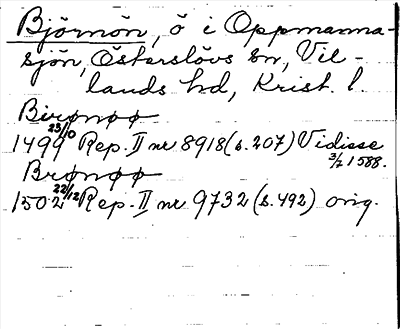 Björnön, ö i Oppmanna-
sjön, Österslövs sn, Vil-
lands hd, Krist. l.
Birønøø
1499 23/10 Rep. II nr 8918 (s. 207) Vidisse
3/7 1588.
Brønøø
1502 22/12 Rep. II nr 9732 (s. 492) orig.